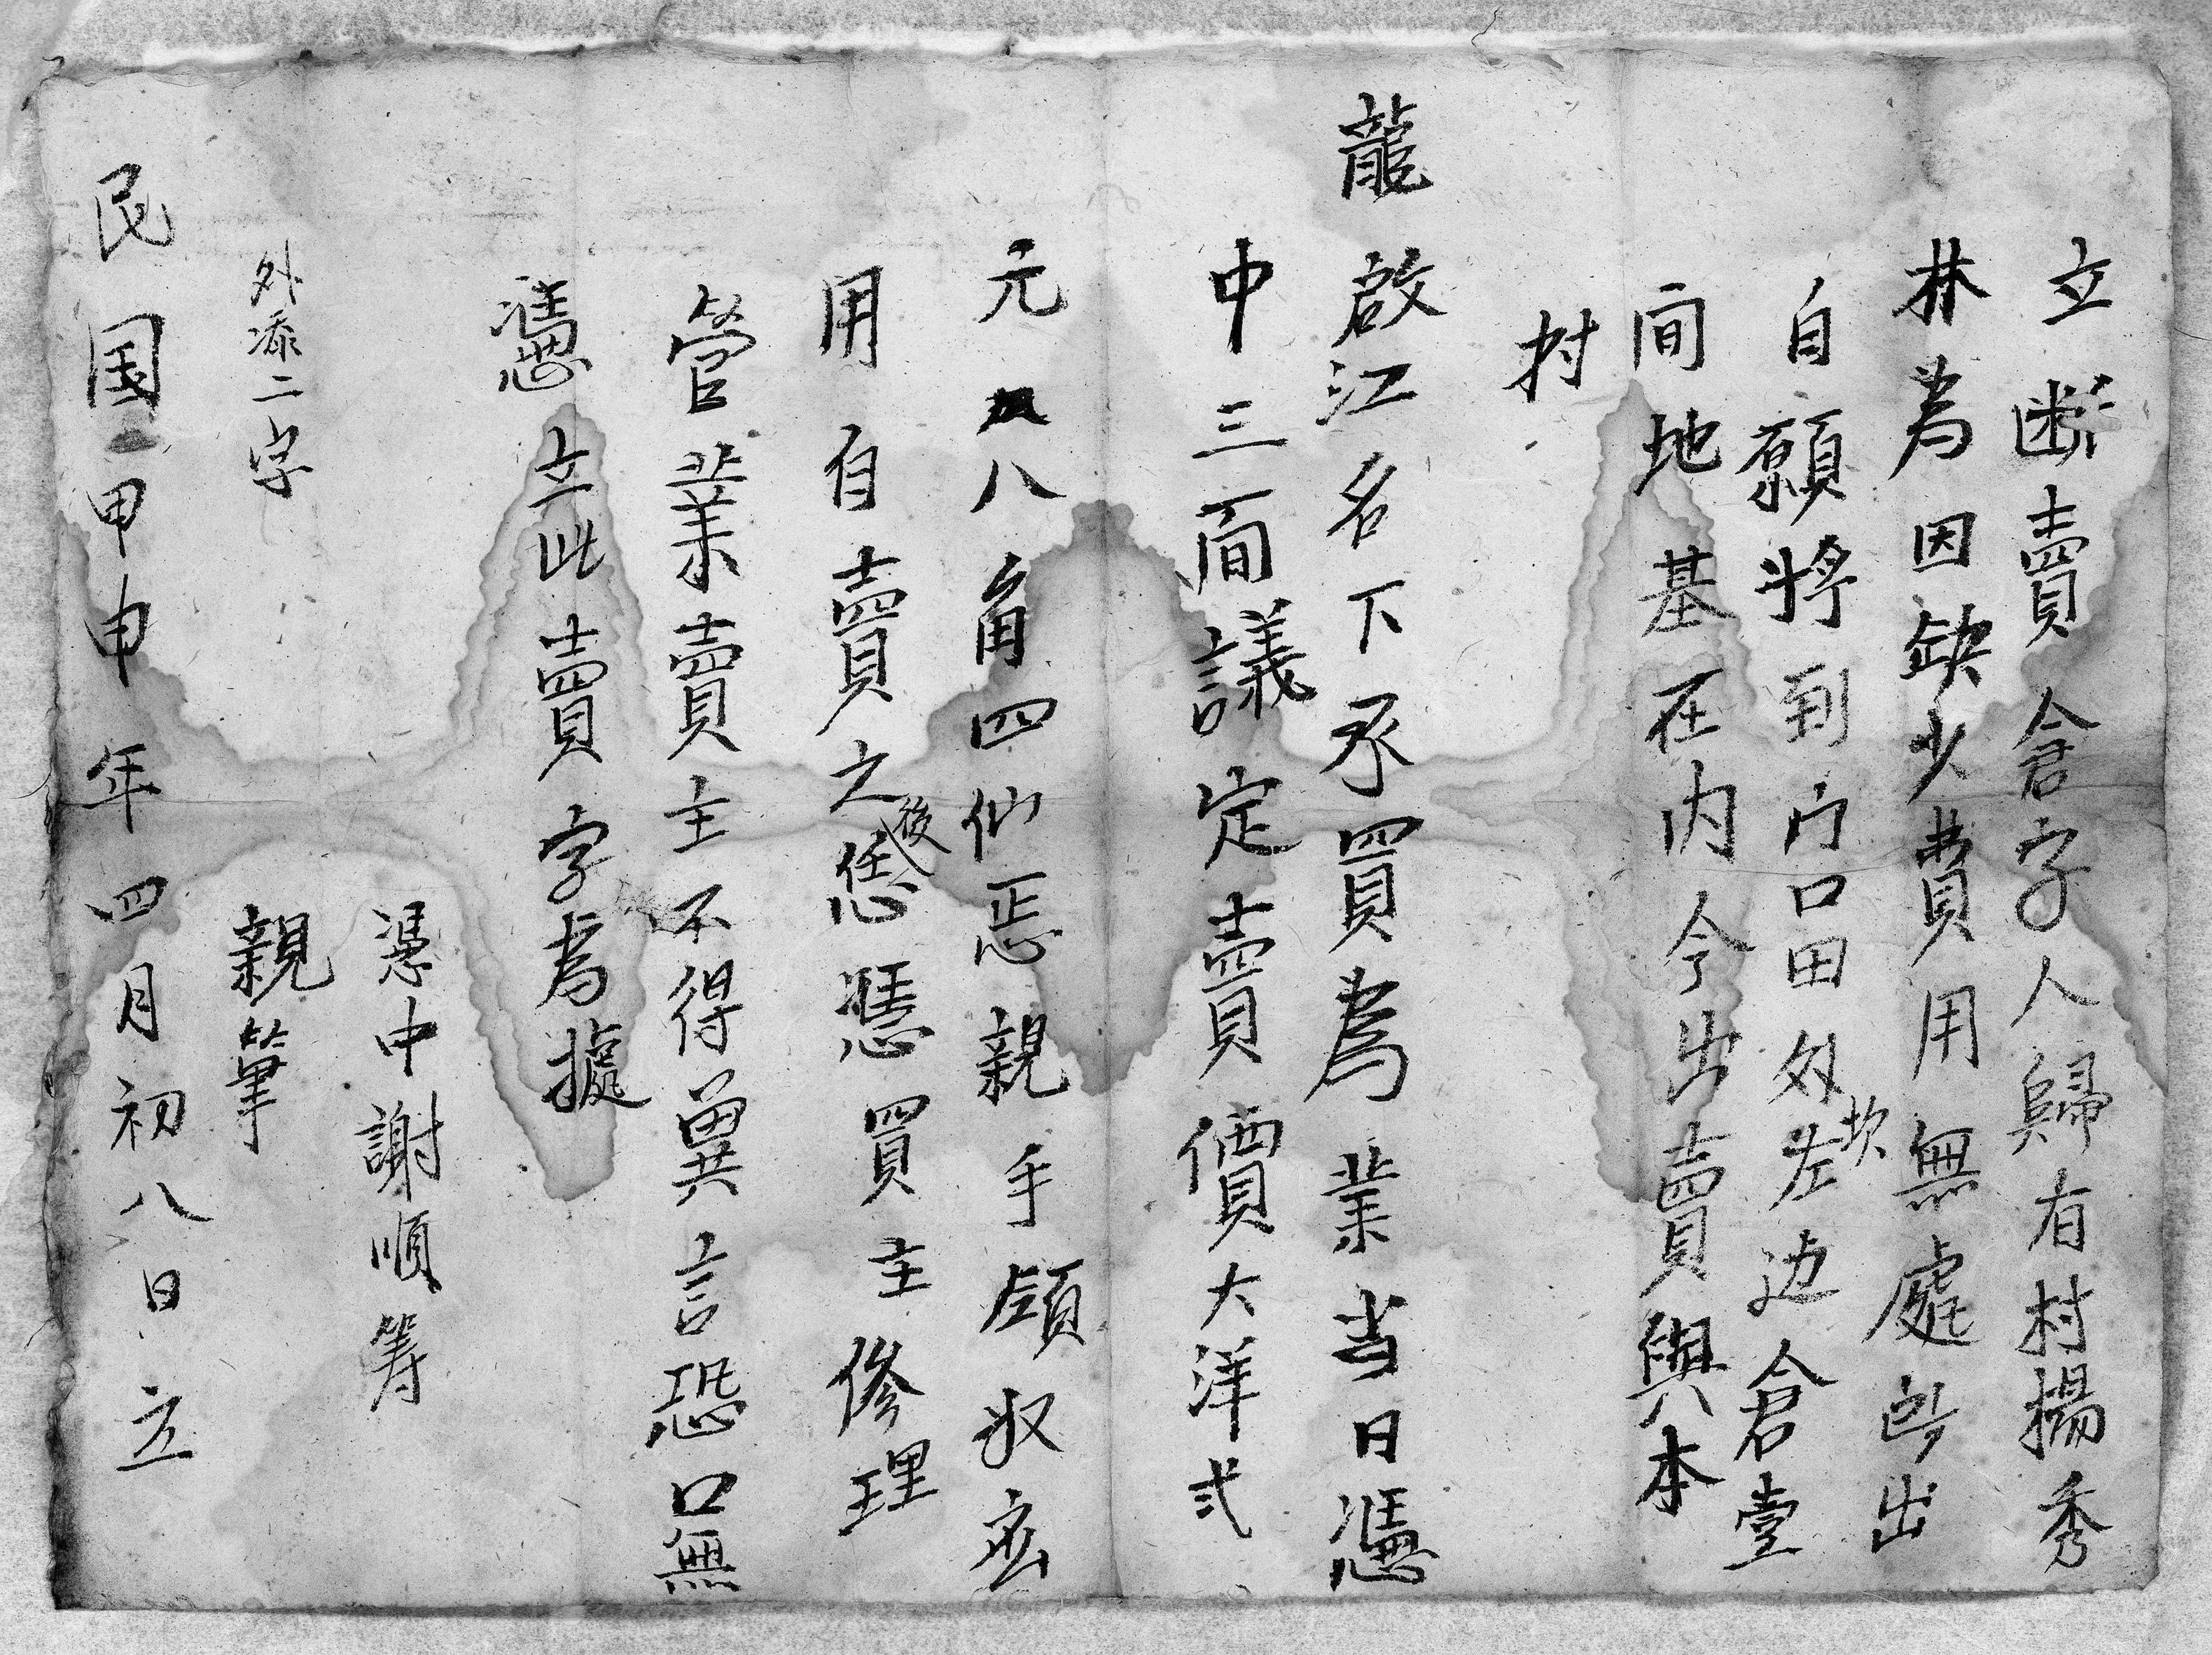 立断賣倉字人歸有村揚秀
林為因缺少費用無處出
自願將到户口田外坎左边倉壹
间地基在内今出賣與本
村
龍啟江名下承買為業当日憑
中三面議定賣價大洋弍
元八角四仙恁親手領収應
用自賣之後恁憑買主修理
管業賣主不得異言恐口無
憑立此賣字為據
憑中謝順筹
外添二字
親筆
民国甲申年四月初八日立